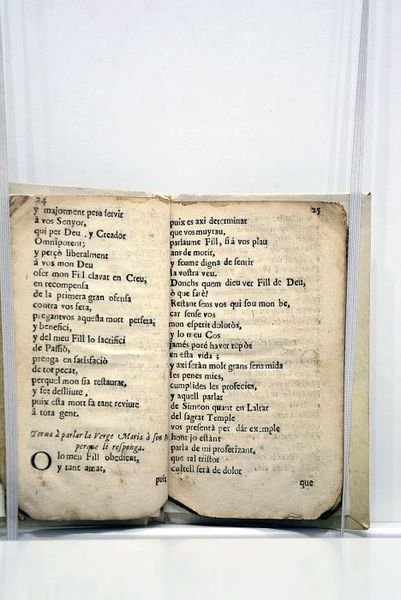 24
y majorment pera servir
à vos Senyor,
qui per Deu, y Creador
Omnipotent;
y perçò liberalment
à vos mon Deu
ofer mon Fill clavat en Creu,
en recompensa
de la primera gran ofensa
contra vos feta,
pregantvos aquesta mort perfeta,
y benefici,
y del meu Fill lo sacrifici
de Passiò,
prenga en satisfaciò
de tot pecat,
perquel mon sia restaurat,
y fet desliure,
puix esta mort fa tant reviure
à tota gent.
Torna à parlar la Verge Maria à son
perque li responga.
O lo meu Fill obedient,
y tant amat,
puix
25
puix es axi determinat
que vos muyrau,
parlaume Fill, si à vos plau
ans de morir,
y feume digna de sentir
la vostra veu.
Donchs quem dieu ver Fill de Deu,
ò que farè?
Restant sens vos qui sou mon be,
car sense vos
mon esperit doloròs,
y lo meu Cos
jamès porè haver repòs
en esta vida;
y axi seràn molt grans sens mida
les penes mies,
cumplides les profecies,
y aquell parlar
de Simeon quant en Laltar
del sagrat Temple
vos presentà per dar exemple
hont jo estant
parla de mi profetizant,
que tal tristor
coltell serà de dolor
que